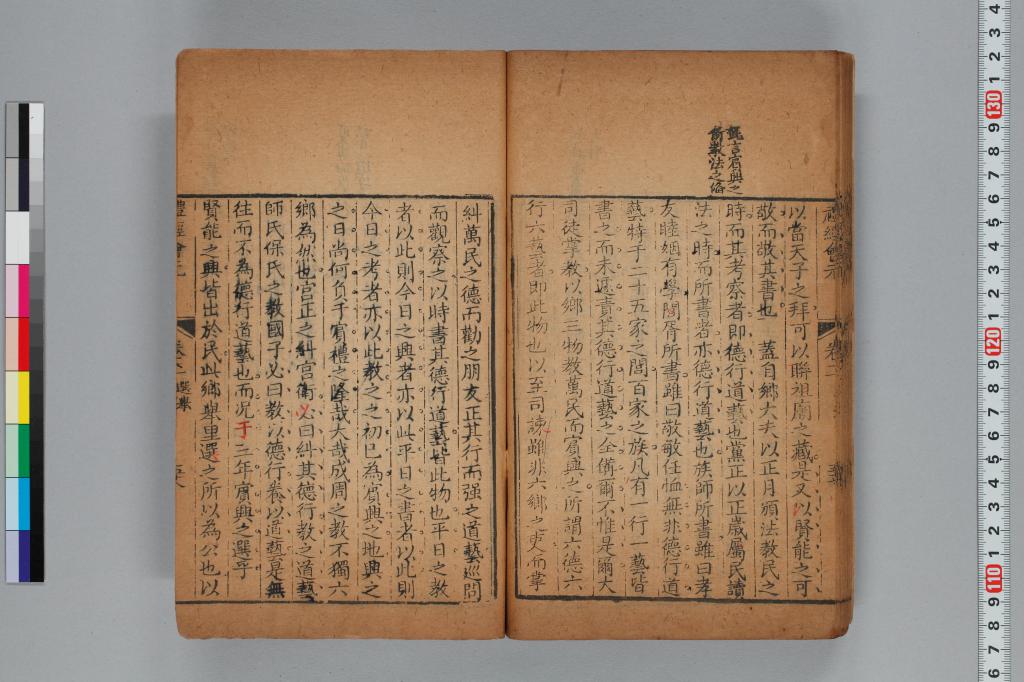 以當天子之拜可以聯祖廟之藏是又以賢能之可
敬而敬其書也 蓋自鄉大夫以正月頒法教民之
時而其考察者即德行道藝也黨正以正歲屬民讀
法之時而所書者亦德行道藝也族師所書雖曰孝
友睦婣有學閭胥所書雖曰敬敏任恤無非德行道
藝特于二十五家之閭百家之族凡有一行一藝皆
書之而未遽責其德行道藝之全備爾不惟是爾大
司徒掌教以鄉三物教萬民而賓興之所謂六德六
行六藝者即此物也以至司諫雖非六鄉之吏而掌
糾萬民之德而勸之朋友正其行而强之道藝巡問
而觀察之以時書其德行道藝皆此物也平日之教
者以此則今日之興者亦以此平日之書者以此則
今日之考者亦以此教之之初已為賓興之地興之
之日尚何負于賓禮之隆哉大哉成周之教不獨六
鄉為然也宮正之糾宮衛必曰糾其德行教之道藝
師氏保氏之教國子必曰教以德行養以道藝是無
往而不為德行道藝也而况于三年賓興之選乎
賢能之興皆出於民此鄉舉里選之所以為公也以
禮經會元 卷之 選舉